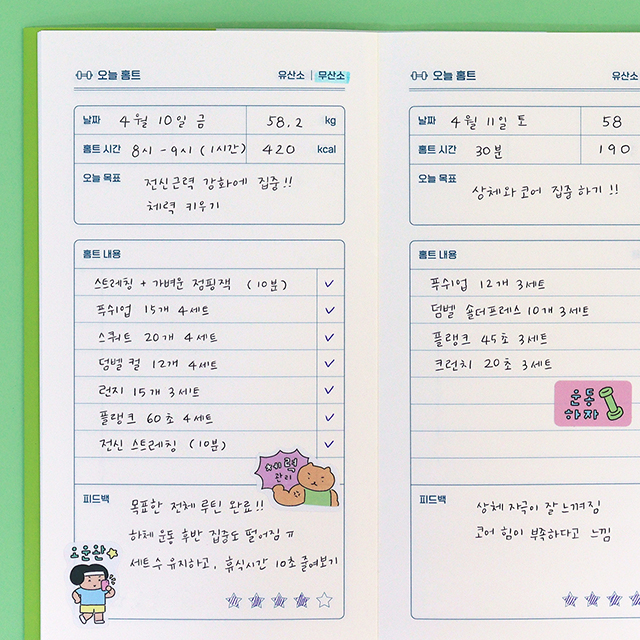 오늘 홈트
유산소 | 무산소
날짜 4월 10일 금 58.2 kg
홈트 시간 8시 - 9시 (1시간) 420 kcal
오늘 목표 전신근력 강화에 집중!!
체력 키우기
홈트 내용
스트레칭 + 가벼운 점핑잭 (10분) ✓
푸쉬업 15개 4세트 ✓
스쿼트 20개 4세트 ✓
덤벨 컬 12개 4세트 ✓
런지 15개 3세트 ✓
플랭크 60초 4세트 ✓
전신 스트레칭 (10분) ✓
체력
관리
피드백 목표한 전체 루틴 완료!!
하체 운동 후반 집중도 떨어짐 ㅠ
세트 수 유지하고, 휴식시간 10초 줄여보기
오운완
오늘 홈트
유산소
날짜 4월 11일 토 58
홈트 시간 30분 190
오늘 목표 상체와 코어 집중하기!!
홈트 내용
푸쉬업 12개 3세트
덤벨 숄더프레스 10개 3세트
플랭크 45초 3세트
크런치 20초 3세트
운동
하자
피드백 상체 자극이 잘 느껴짐
코어 힘이 부족하다고 느낌